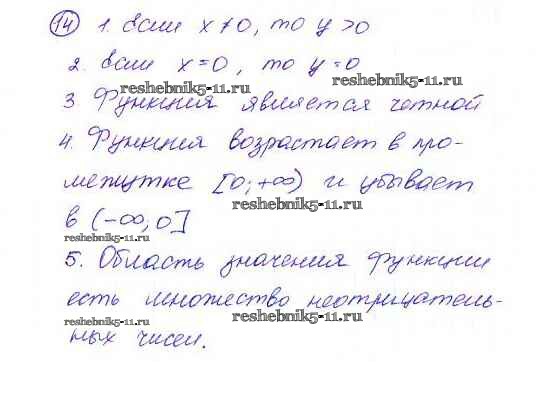 14 1. Если x≠0, то y>0
2. Если x=0, то y=0
reshebnik5-11.ru reshebnik5-11.ru
3 Функция является четной
4. Функция возрастает в про-
межутке [0; +∞) и убывает
reshebnik5-11.ru
в (-∞; 0]
reshebnik5-11.ru
5. Область значения функции
есть множество неотрицатель-
reshebnik5-11.ru reshebnik5-11.ru
ных чисел.